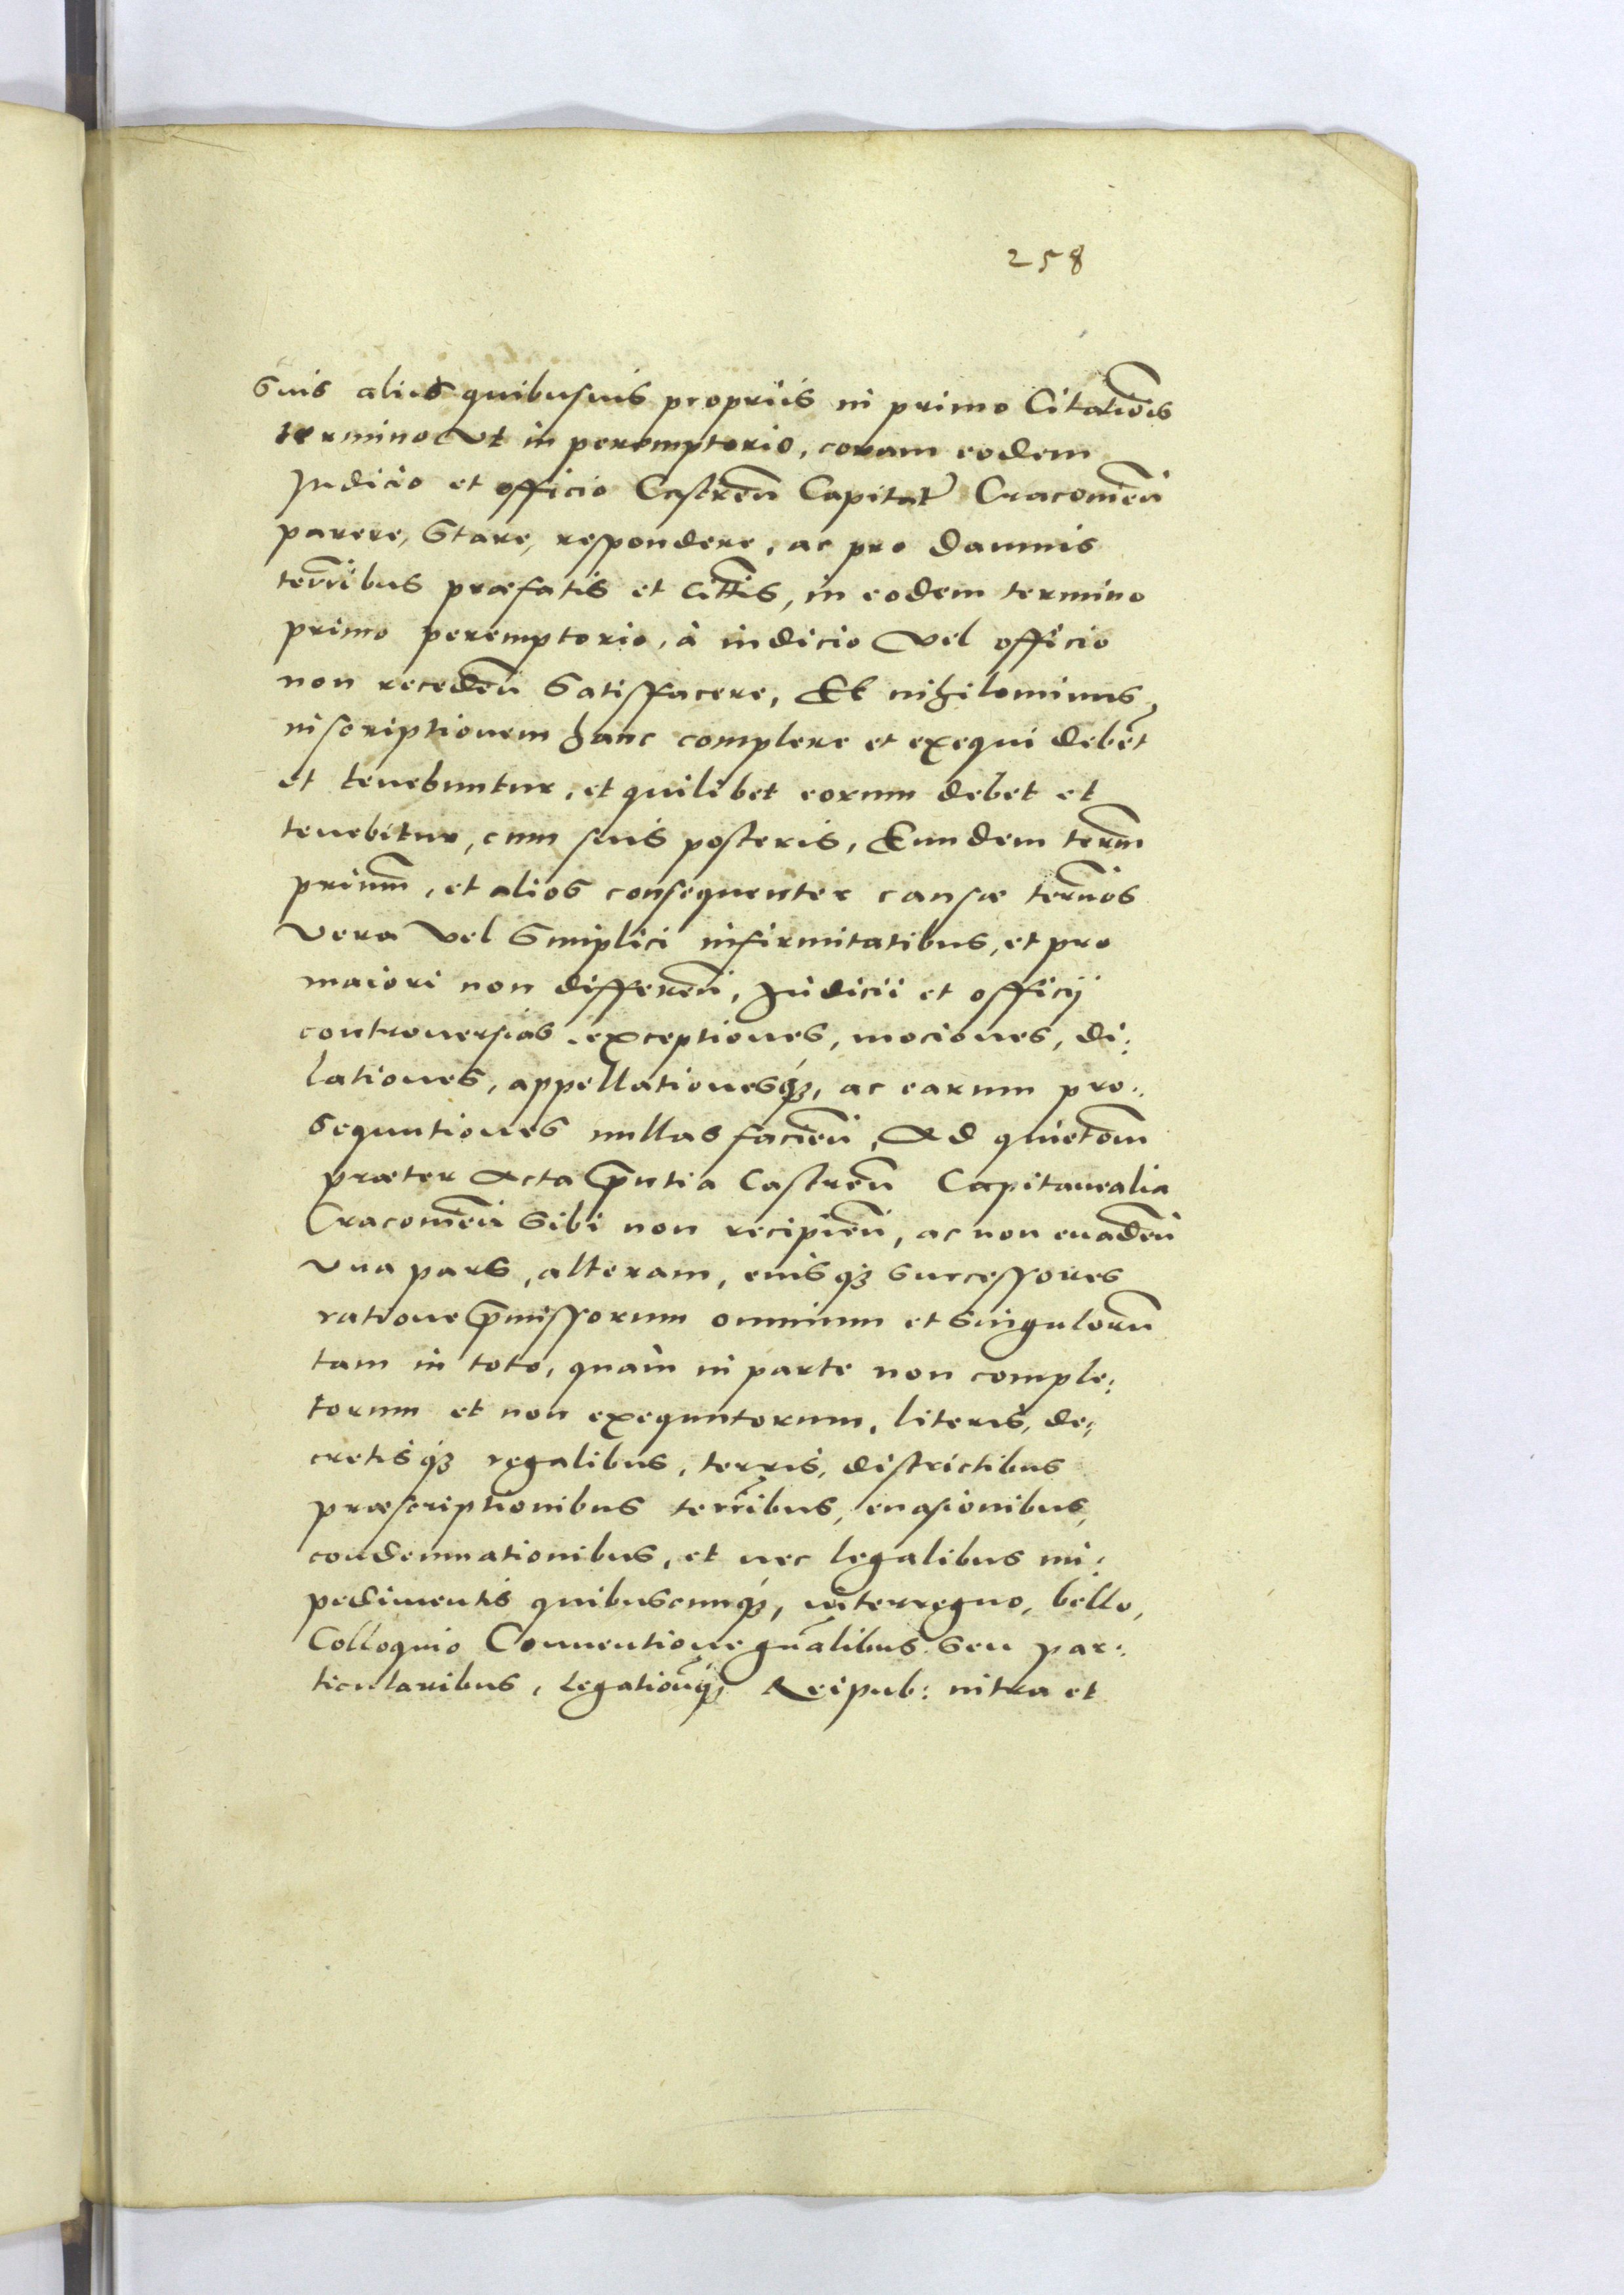 258
suis aliis quibusuis propriis in primo Citatiõis
termino Vt in peremptorio, coram eodem
Judicio et officio Castreñ Capitał Cracouieñ
parere, Stare, respondere, ac pro damnis
terrĩbus præfatis et cittĩs, in eodem termino
primo peremptorio, à iudicio Vel officio
non recedeñ Satisfacere, Et nihilominus,
inscriptionem hanc complere et exequi debẽt
et tenebuntur, et quilibet eorum debet et
tenebitur, cum suis posteris, Eundem term̃
primũ, et alios consequenter causæ term̃os
Vera Vel Simplici infirmitatibus, et pro
maiori non differeñ, Judicii et officij
controuersias exceptiones, mociones, di:
lationes, appellationesq́ȝ, ac earum pro:
sequutiones nullas facieñ, Ad quietoẽm
præter Acta p̃ntia Castreñ Capitanealia
Cracouieñ Sibi non recipieñ, ac non euadeñ
Vna pars, alteram, eiusq́ȝ successores
ratione p̃missorum omnium et Singulorũ
tam in toto, quàm in parte non comple:
torum et non exequutorum, literis, de:
cretisq́ȝ regalibus, terris, districtibus
præscriptionibus terrĩbus, euasionibus,
condemnationibus, et nec legalibus im:
pedimentis quibuscumq́ȝ, interregno, bello,
Colloquio Conuentione gñalibus seu par:
ticularibus, legationẽq́ȝ Reipub: intra et